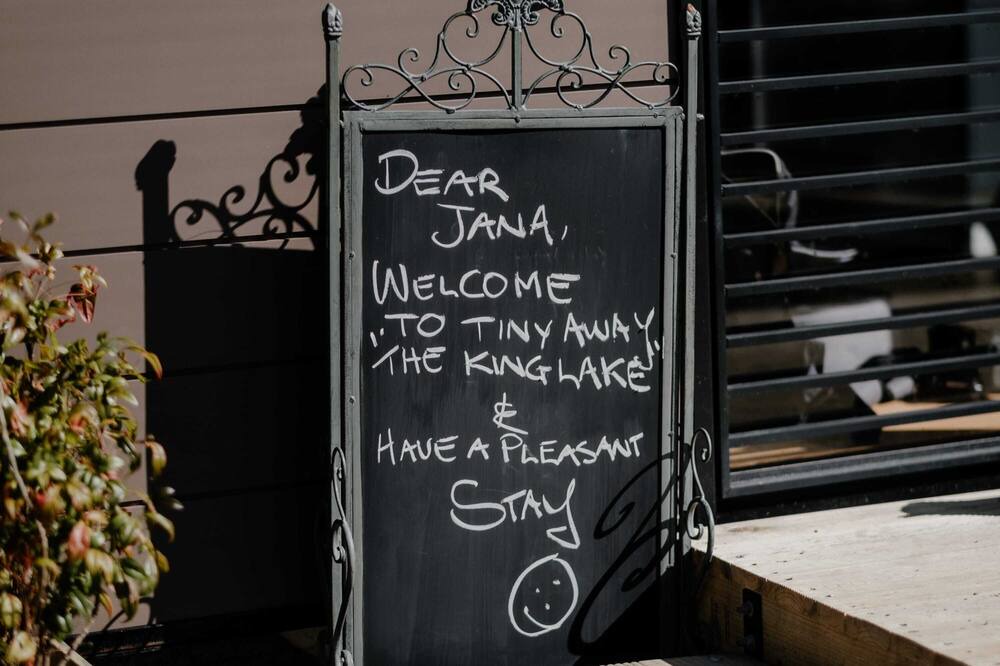 DEAR
JANA,
WELCOME
"TO TINY AWAY
THE KINGLAKE"
&
HAVE A PLEASANT
STAY